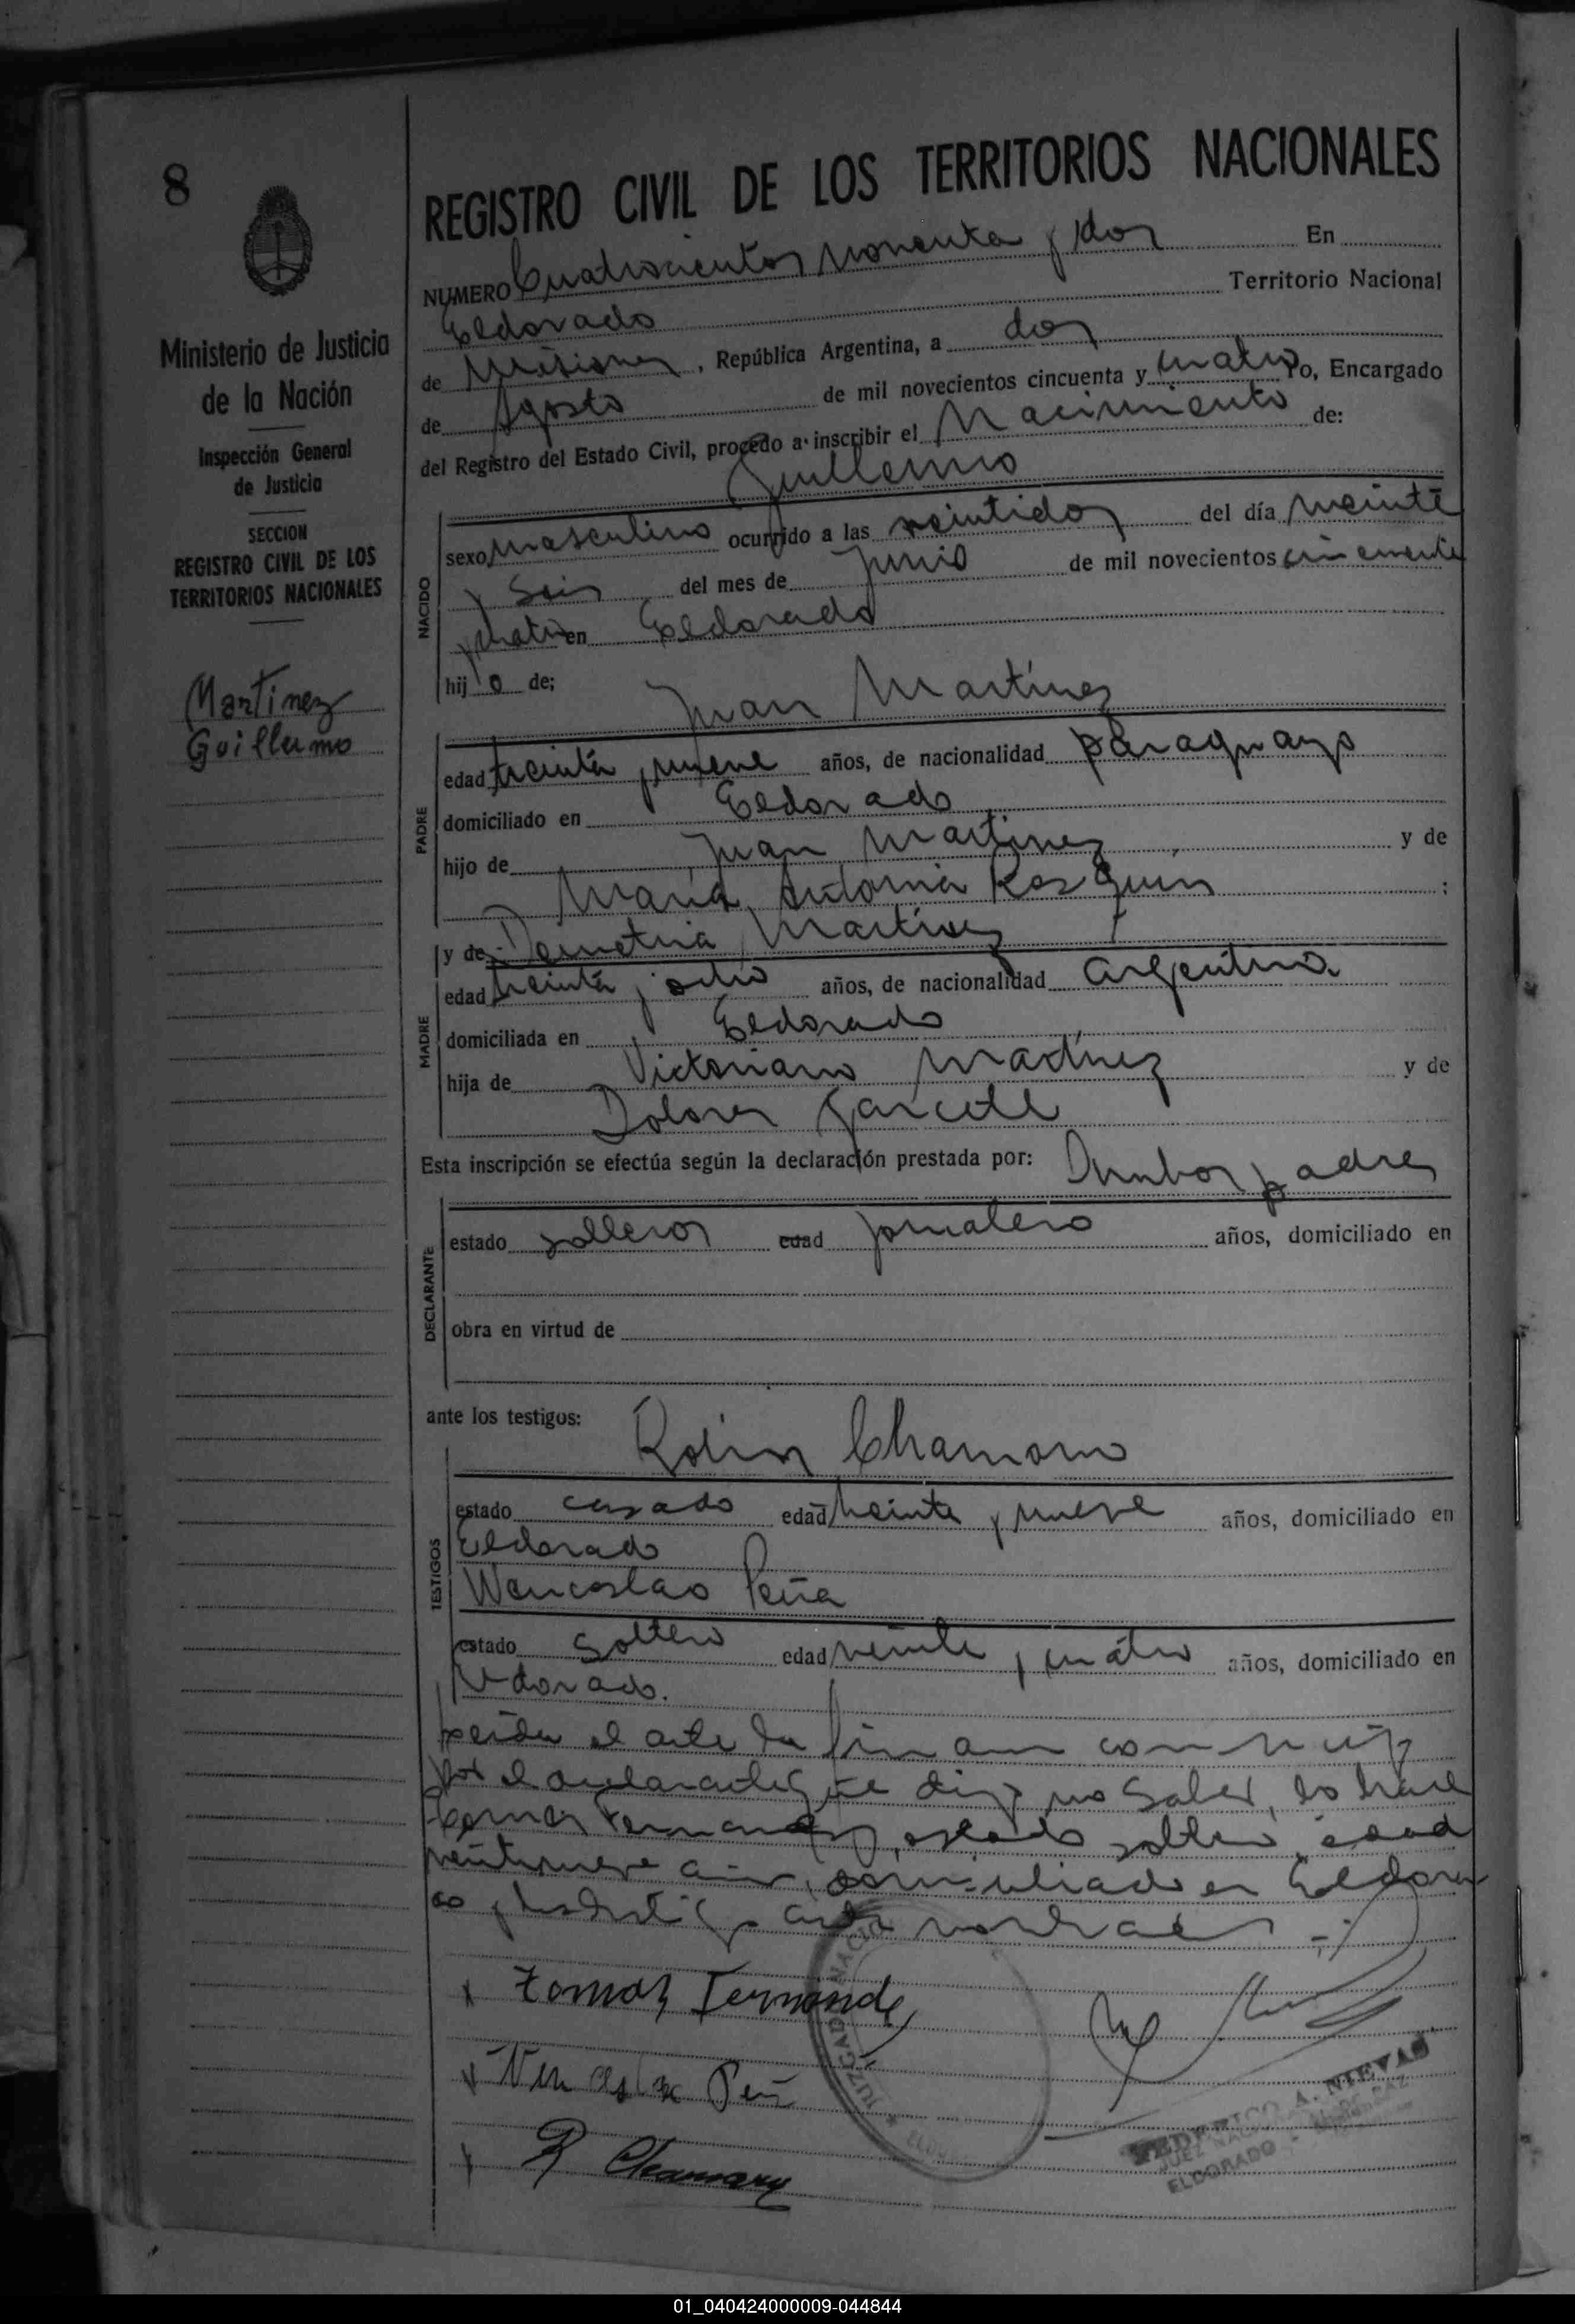 8
Ministerio de Justicia
de la Nación
Inspección General
de Justicia
SECCION
REGISTRO CIVIL DE LOS
TERRITORIOS NACIONALES
Martinez
Guillermo
REGISTRO CIVIL DE LOS TERRITORIOS NACIONALES
NUMERO Cuatrocientos noventa y dos En
Eldorado Territorio Nacional
de Misiones, República Argentina, a dos
de Agosto de mil novecientos cincuenta y cuatro Yo, Encargado
del Registro del Estado Civil, procedo a inscribir el Nacimiento de:
Guillermo
NACIDO
sexo masculino ocurrido a las veintidos del día veinte
y seis del mes de Junio de mil novecientos cincuenta
y cuatro en Eldorado
hijo de;
Juan Martínez
PADRE
edad treinta y nueve años, de nacionalidad paraguayo
domiciliado en Eldorado
hijo de Juan Martinez y de
María Antonia ;
y de Demetria Martínez
MADRE
edad treinta y ocho años, de nacionalidad argentina
domiciliada en Eldorado
hija de Victoriano Martínez y de
Dolores Garcete
Esta inscripción se efectúa según la declaración prestada por: Ambos padres
DECLARANTE
estado solteros edad jornalero años, domiciliado en
obra en virtud de
ante los testigos:
Chamorro
TESTIGOS
estado casado edad y nueve años, domiciliado en
Eldorado
Wenceslao Peña
estado soltero edad veinte y cuatro años, domiciliado en
Eldorado.
el acta la firman conmigo
por el declarante que dijo no saber, lo hace
Tomas Fernandez, estado soltero, edad
veintinueve años, domiciliado en Eldora
do y los testigos
x Tomaz Fernandez
x Wenceslao Peña
x R Chamorro
JUZGADO
FEDERICO A. NIEVAS
JUEZ
ELDORADO
01_040424000009-044844